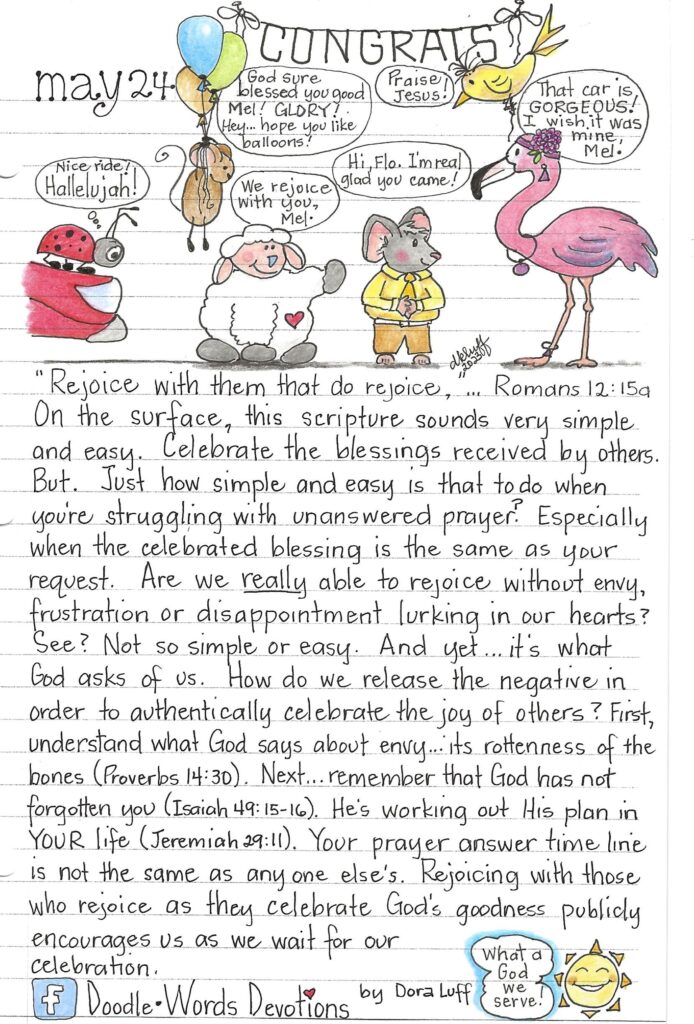 CONGRATS
may 24
God sure
blessed you good
Mel! GLORY!
Hey... hope you like
balloons!
Praise
Jesus!
That car is
GORGEOUS!
I wish it was
mine,
Mel.
Nice ride!
Hallelujah!
We rejoice
with you,
Mel.
Hi, Flo. I'm real
glad you came!
"Rejoice with them that do rejoice, ... Romans 12:15a
On the surface, this scripture sounds very simple
and easy. Celebrate the blessings received by others.
But. Just how simple and easy is that to do when
you're struggling with unanswered prayer? Especially
when the celebrated blessing is the same as your
request. Are we really able to rejoice without envy,
frustration or disappointment lurking in our hearts?
See? Not so simple or easy. And yet... it's what
God asks of us. How do we release the negative in
order to authentically celebrate the joy of others? First,
understand what God says about envy... its rottenness of the
bones (Proverbs 14:30). Next... remember that God has not
forgotten you (Isaiah 49:15-16). He's working out His plan in
YOUR life (Jeremiah 29:11). Your prayer answer time line
is not the same as any one else's. Rejoicing with those
who rejoice as they celebrate God's goodness publicly
encourages us as we wait for our
celebration.
What a
God
we
serve!
f Doodle•Words Devotions by Dora Luff